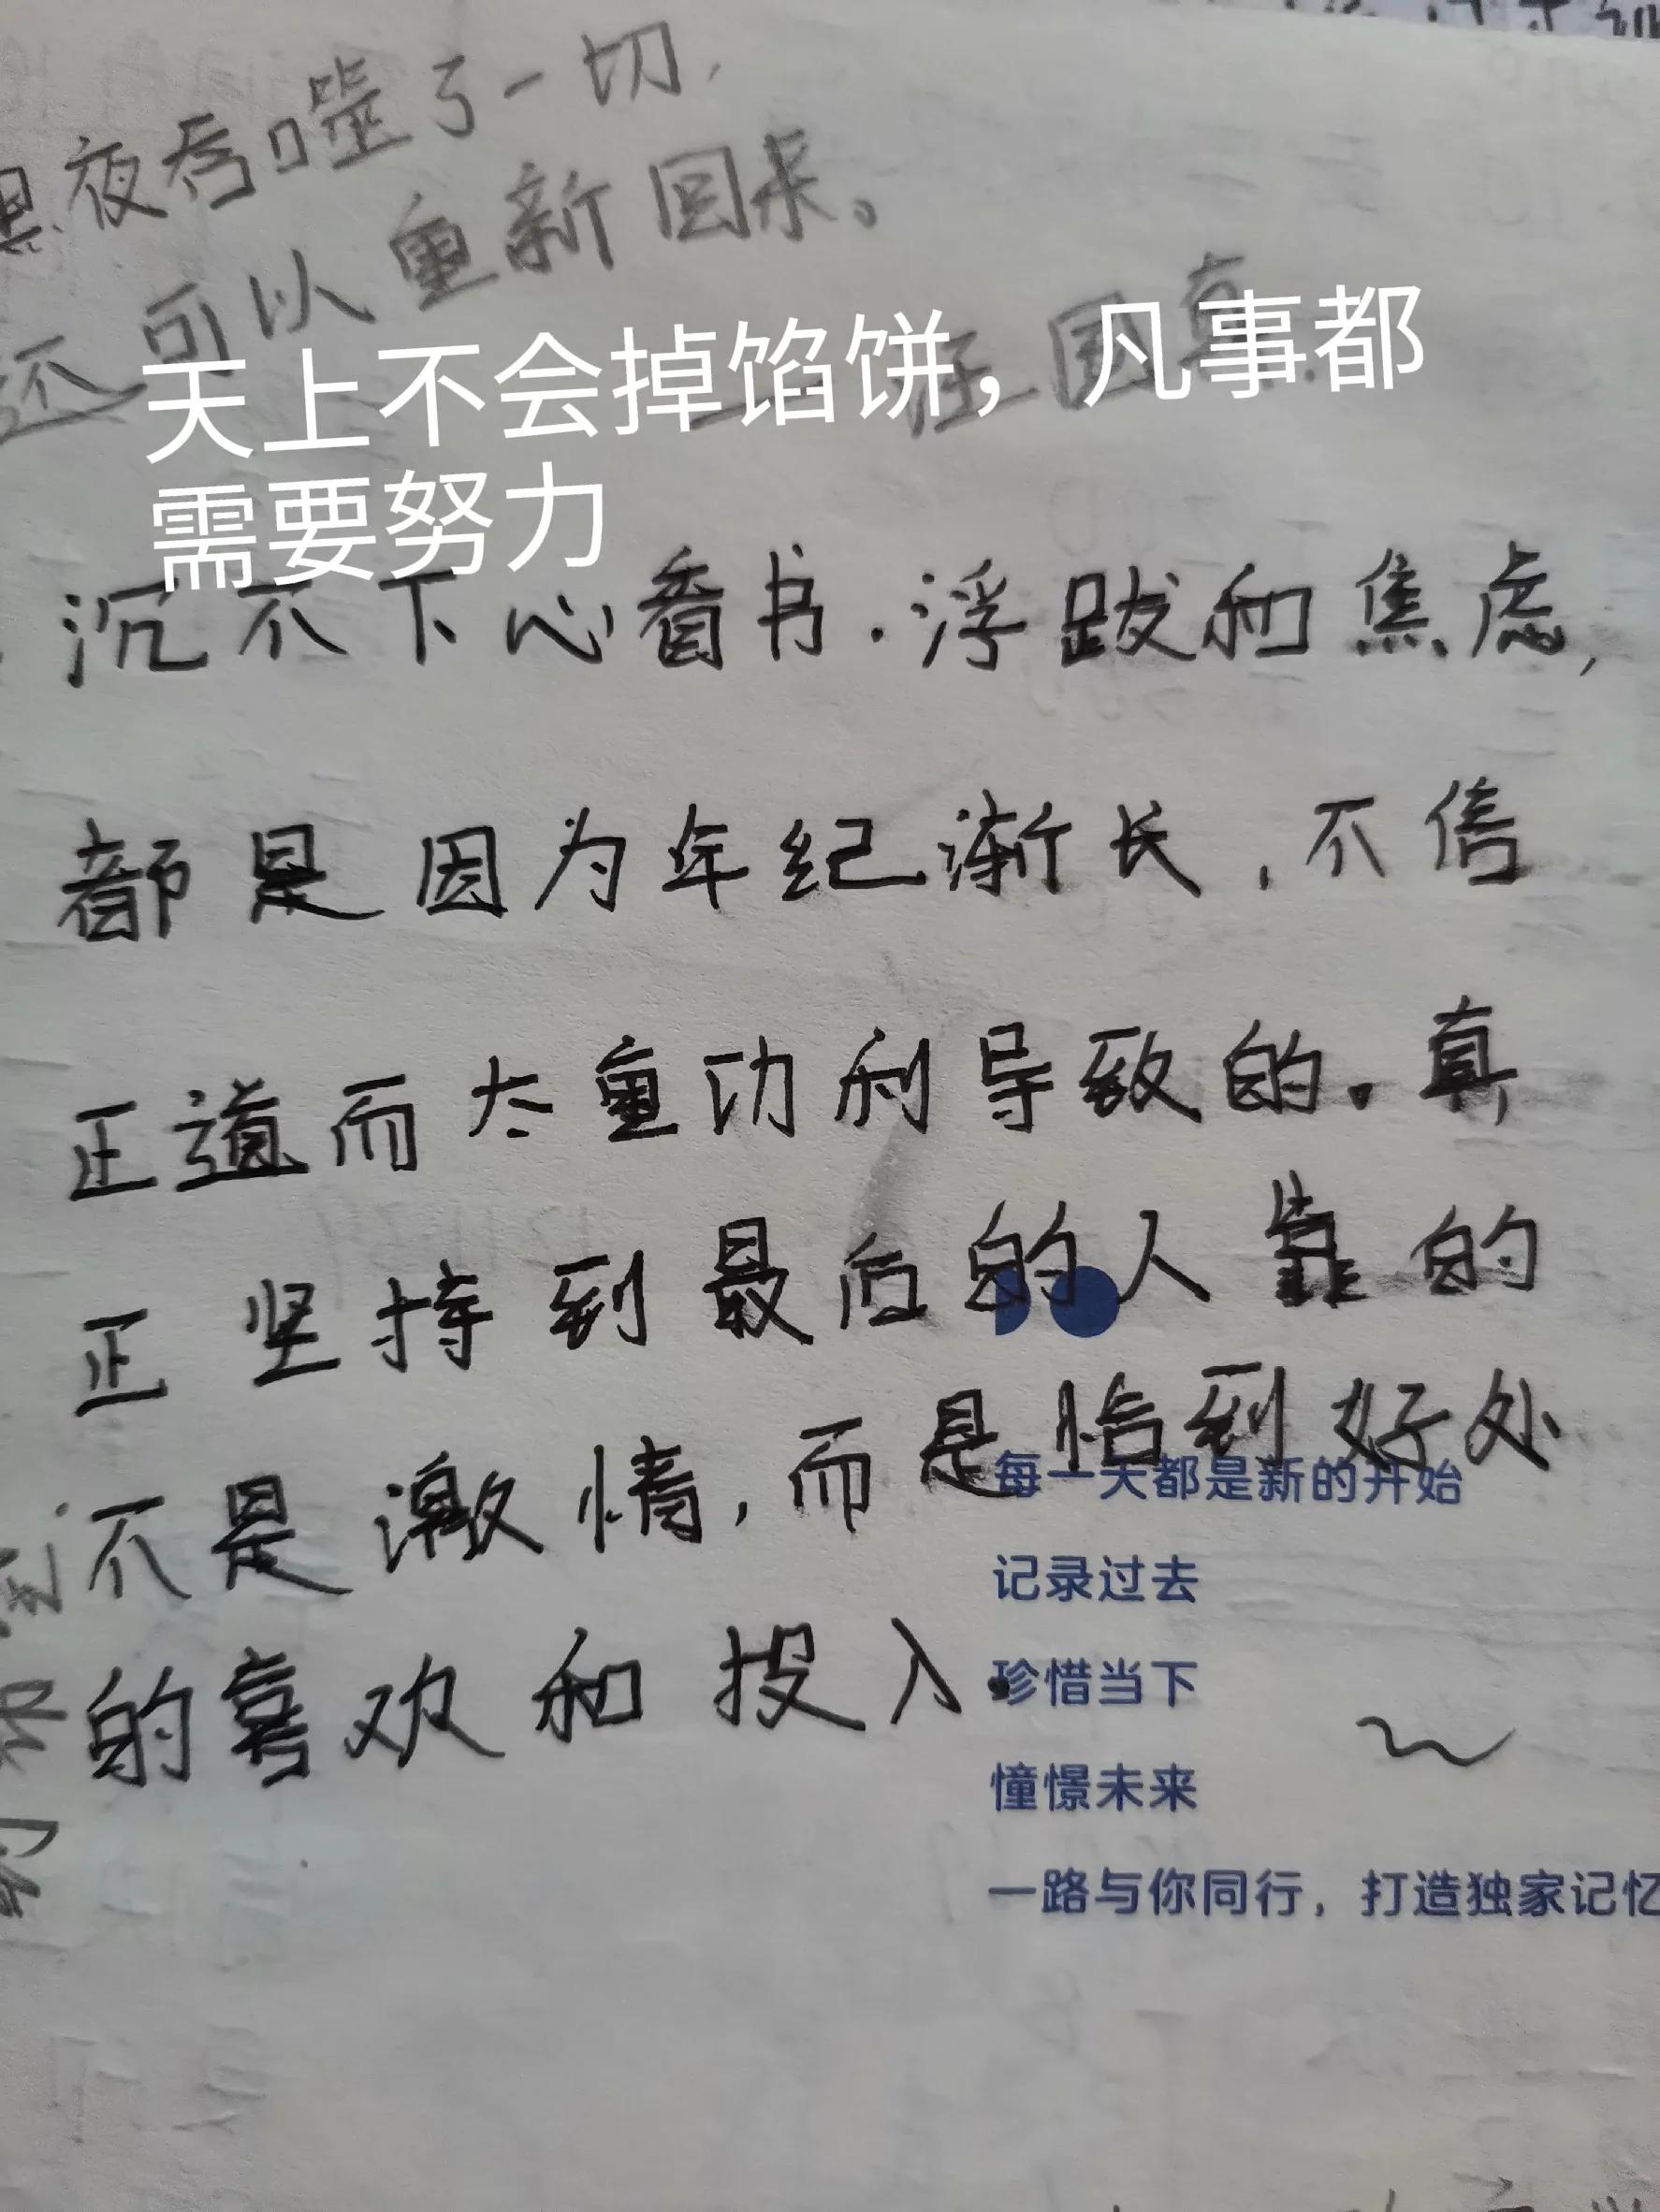 黑夜吞噬了一切,
还可以重新回来。
汪国真
天上不会掉馅饼，凡事都
需要努力
沉不下心看书.浮跋和焦虑,
都是因为年纪渐长,不信
正道而太重功利导致的.真
正坚持到最后的人靠的
不是激情,而是恰到好处
的喜欢和投入.
每一天都是新的开始
记录过去
珍惜当下
憧憬未来
一路与你同行，打造独家记忆